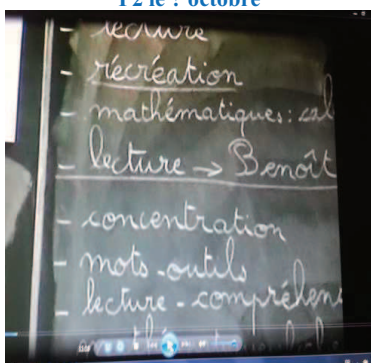 P2 le ? octobre
- lecture
- récréation
- mathématiques : cal
- lecture → Benoît
- concentration
- mots-outils
- lecture - compréhen